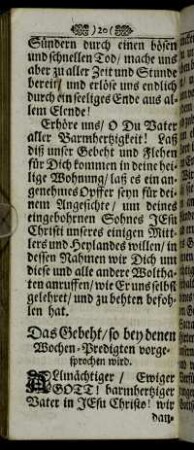 ) 20 (
Sündern durch einen bösen
und schnellen Tod/ mache uns
aber zu aller Zeit und Stunde
bereit/ und erlöse uns endlich
durch ein seeliges Ende aus al-
lem Elende!
Erhöre uns/ O Du Vater
aller Barmhertzigkeit! Laß
diß unser Gebeht und Flehen
für Dich kommen in deine hei-
lige Wohnung/ laß es ein an-
genehmes Opffer seyn für dei-
nem Angesichte/ um deines
eingebohrnen Sohnes JEsu
Christi unseres einigen Mitt-
lers und Heylandes willen/ in
dessen Nahmen wir Dich um
diese und alle andere Woltha-
ten anruffen/ wie Er uns selbst
gelehret/ und zu behten befoh-
len hat.
Das Gebeht/ so bey denen
Wochen-Predigten vorge-
sprochen wird.
ALlmächtiger / Ewiger
GOTT! barmhertziger
Vater in JEsu Christo! wir
dan-